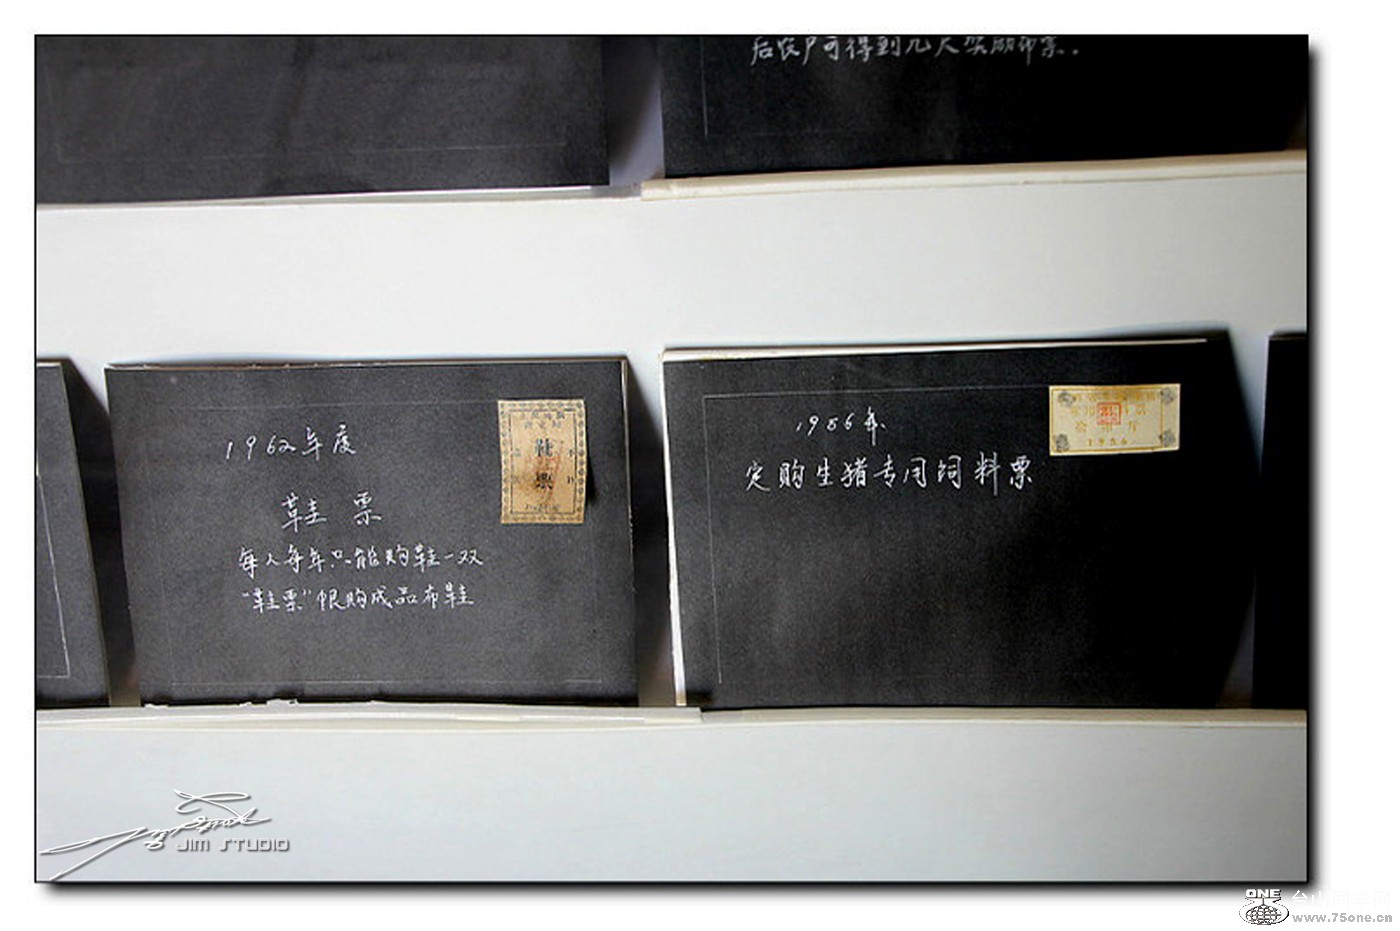 后农户可得到几尺奖励布票.
1962年度
鞋票
每人每年只能购鞋一双
"鞋票"限购成品布鞋
鞋
票
1956年
定购生猪专用饲料票
1956
JIM STUDIO
ONE
台山同学网
www.75one.cn